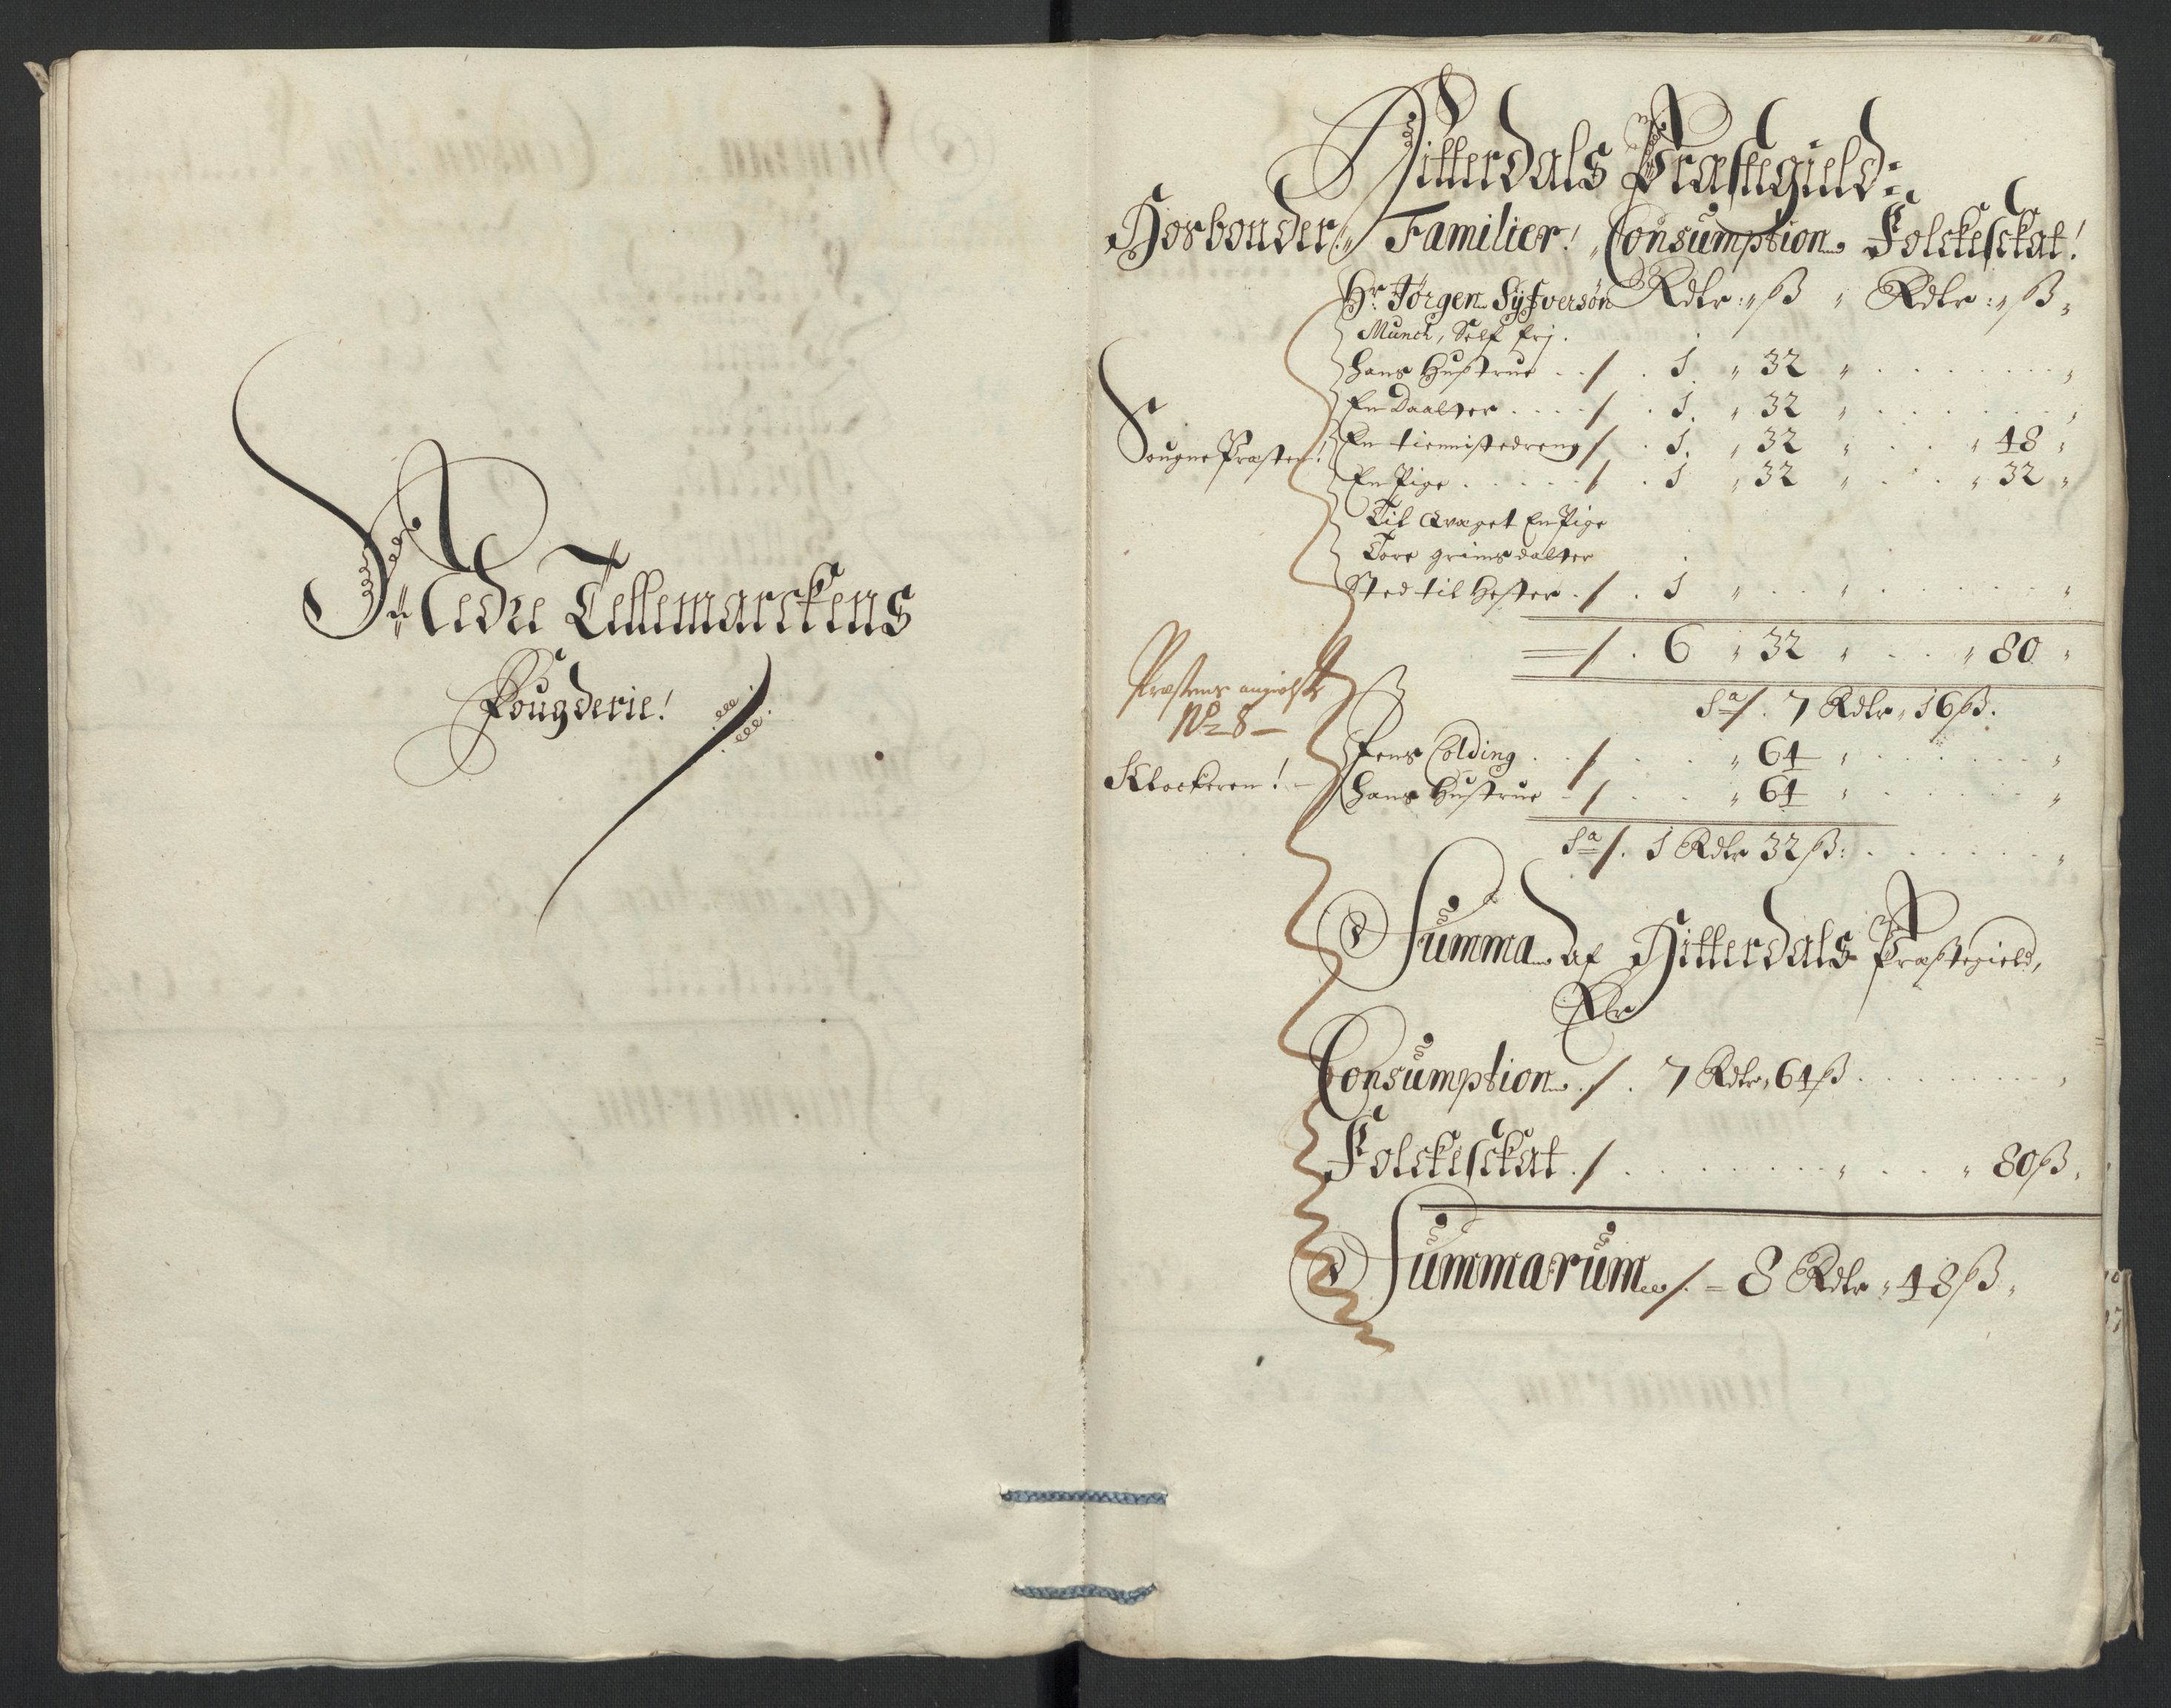 Nedre Tellemarckens
Fougderie!
Hitterdals Præstegield:
Hosbonder! Familier! Consumption Folckeschat!
Hr Jørgen Syfversøn Rdlr: ß Rdlr: ß
Munch, Self frj.
Hans Hustrue . . /. 1 " 32 "
En Daatter . . . . /. 1. " 32 "
Sougne Præsten! En tienistedreng /. 1. " 32 " . . " 48 "
En Pige . . . . . /. 1 " 32 " . . " 32 "
Til Qvæget En Pige
Tore grimsdatter
Sted til Hester . /. 1 "
/. 6 " 32 " . . " 80 "
Sa /. 7 Rdlr " 16 ß.
Præstens
No 8 –
Jens Colding . . / . . " 64 "
Klockeren! – Hans Hustrue – / . . " 64 "
Sa /. 1 Rdlr 32 ß:
Summa af Hitterdals Præstegield,
Er
Consumption . /. 7 Rdlr " 64 ß
Folckeschat . /. . . " 80 ß "
Summarum /. = 8 Rdlr " 48 ß "